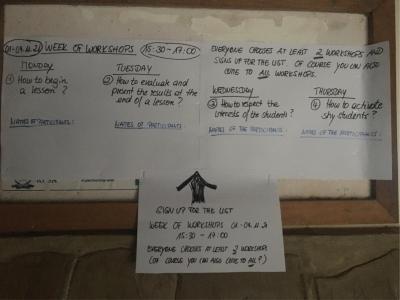 01-04.11.21 WEEK OF WORKSHOPS 15:30 - 17:00
MONDAY
① How to begin
a lesson?
NAMES OF PARTICIPANTS:
TUESDAY
② How to evaluate and
present the results at the
end of a lesson?
NAMES OF PARTICIPANTS:
EVERYONE CHOOSES AT LEAST 2 WORKSHOPS AND
SIGNS UP FOR THE LIST. OF COURSE YOU CAN ALSO
COME TO ALL WORKSHOPS.
WEDNESDAY
③ How to respect the
interests of the students?
NAMES OF THE PARTICIPANTS:
THURSDAY
④ How to activate
shy students?
NAMES OF THE PARTICIPANTS:
SIGN UP FOR THE LIST
WEEK OF WORKSHOPS 01-04.11.21
15:30 - 17:00
EVERYONE CHOOSES AT LEAST 2 WORKSHOP
(OF COURSE YOU CAN ALSO COME TO ALL!)